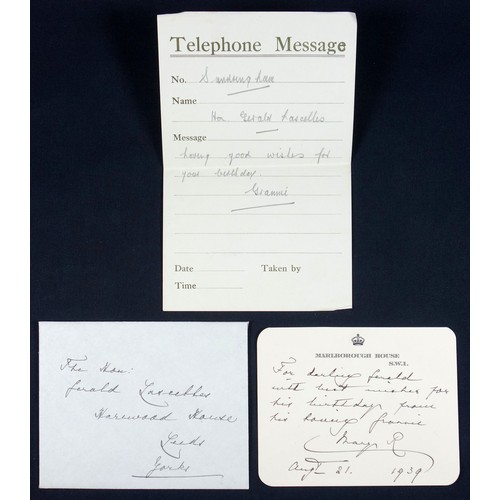 Telephone Message
No. Sandringham
Name
Hon Gerald Lascelles
Message
loving good wishes for
your birthday.
Grannie
Date Taken by
Time
The Hon:
Gerald Lascelles
Harewood House
Leeds
Yorks
MARLBOROUGH HOUSE
S.W.1.
For darling Gerald
with best wishes for
his birthday from
his loving Grannie
Mary R
Aug: 21. 1939